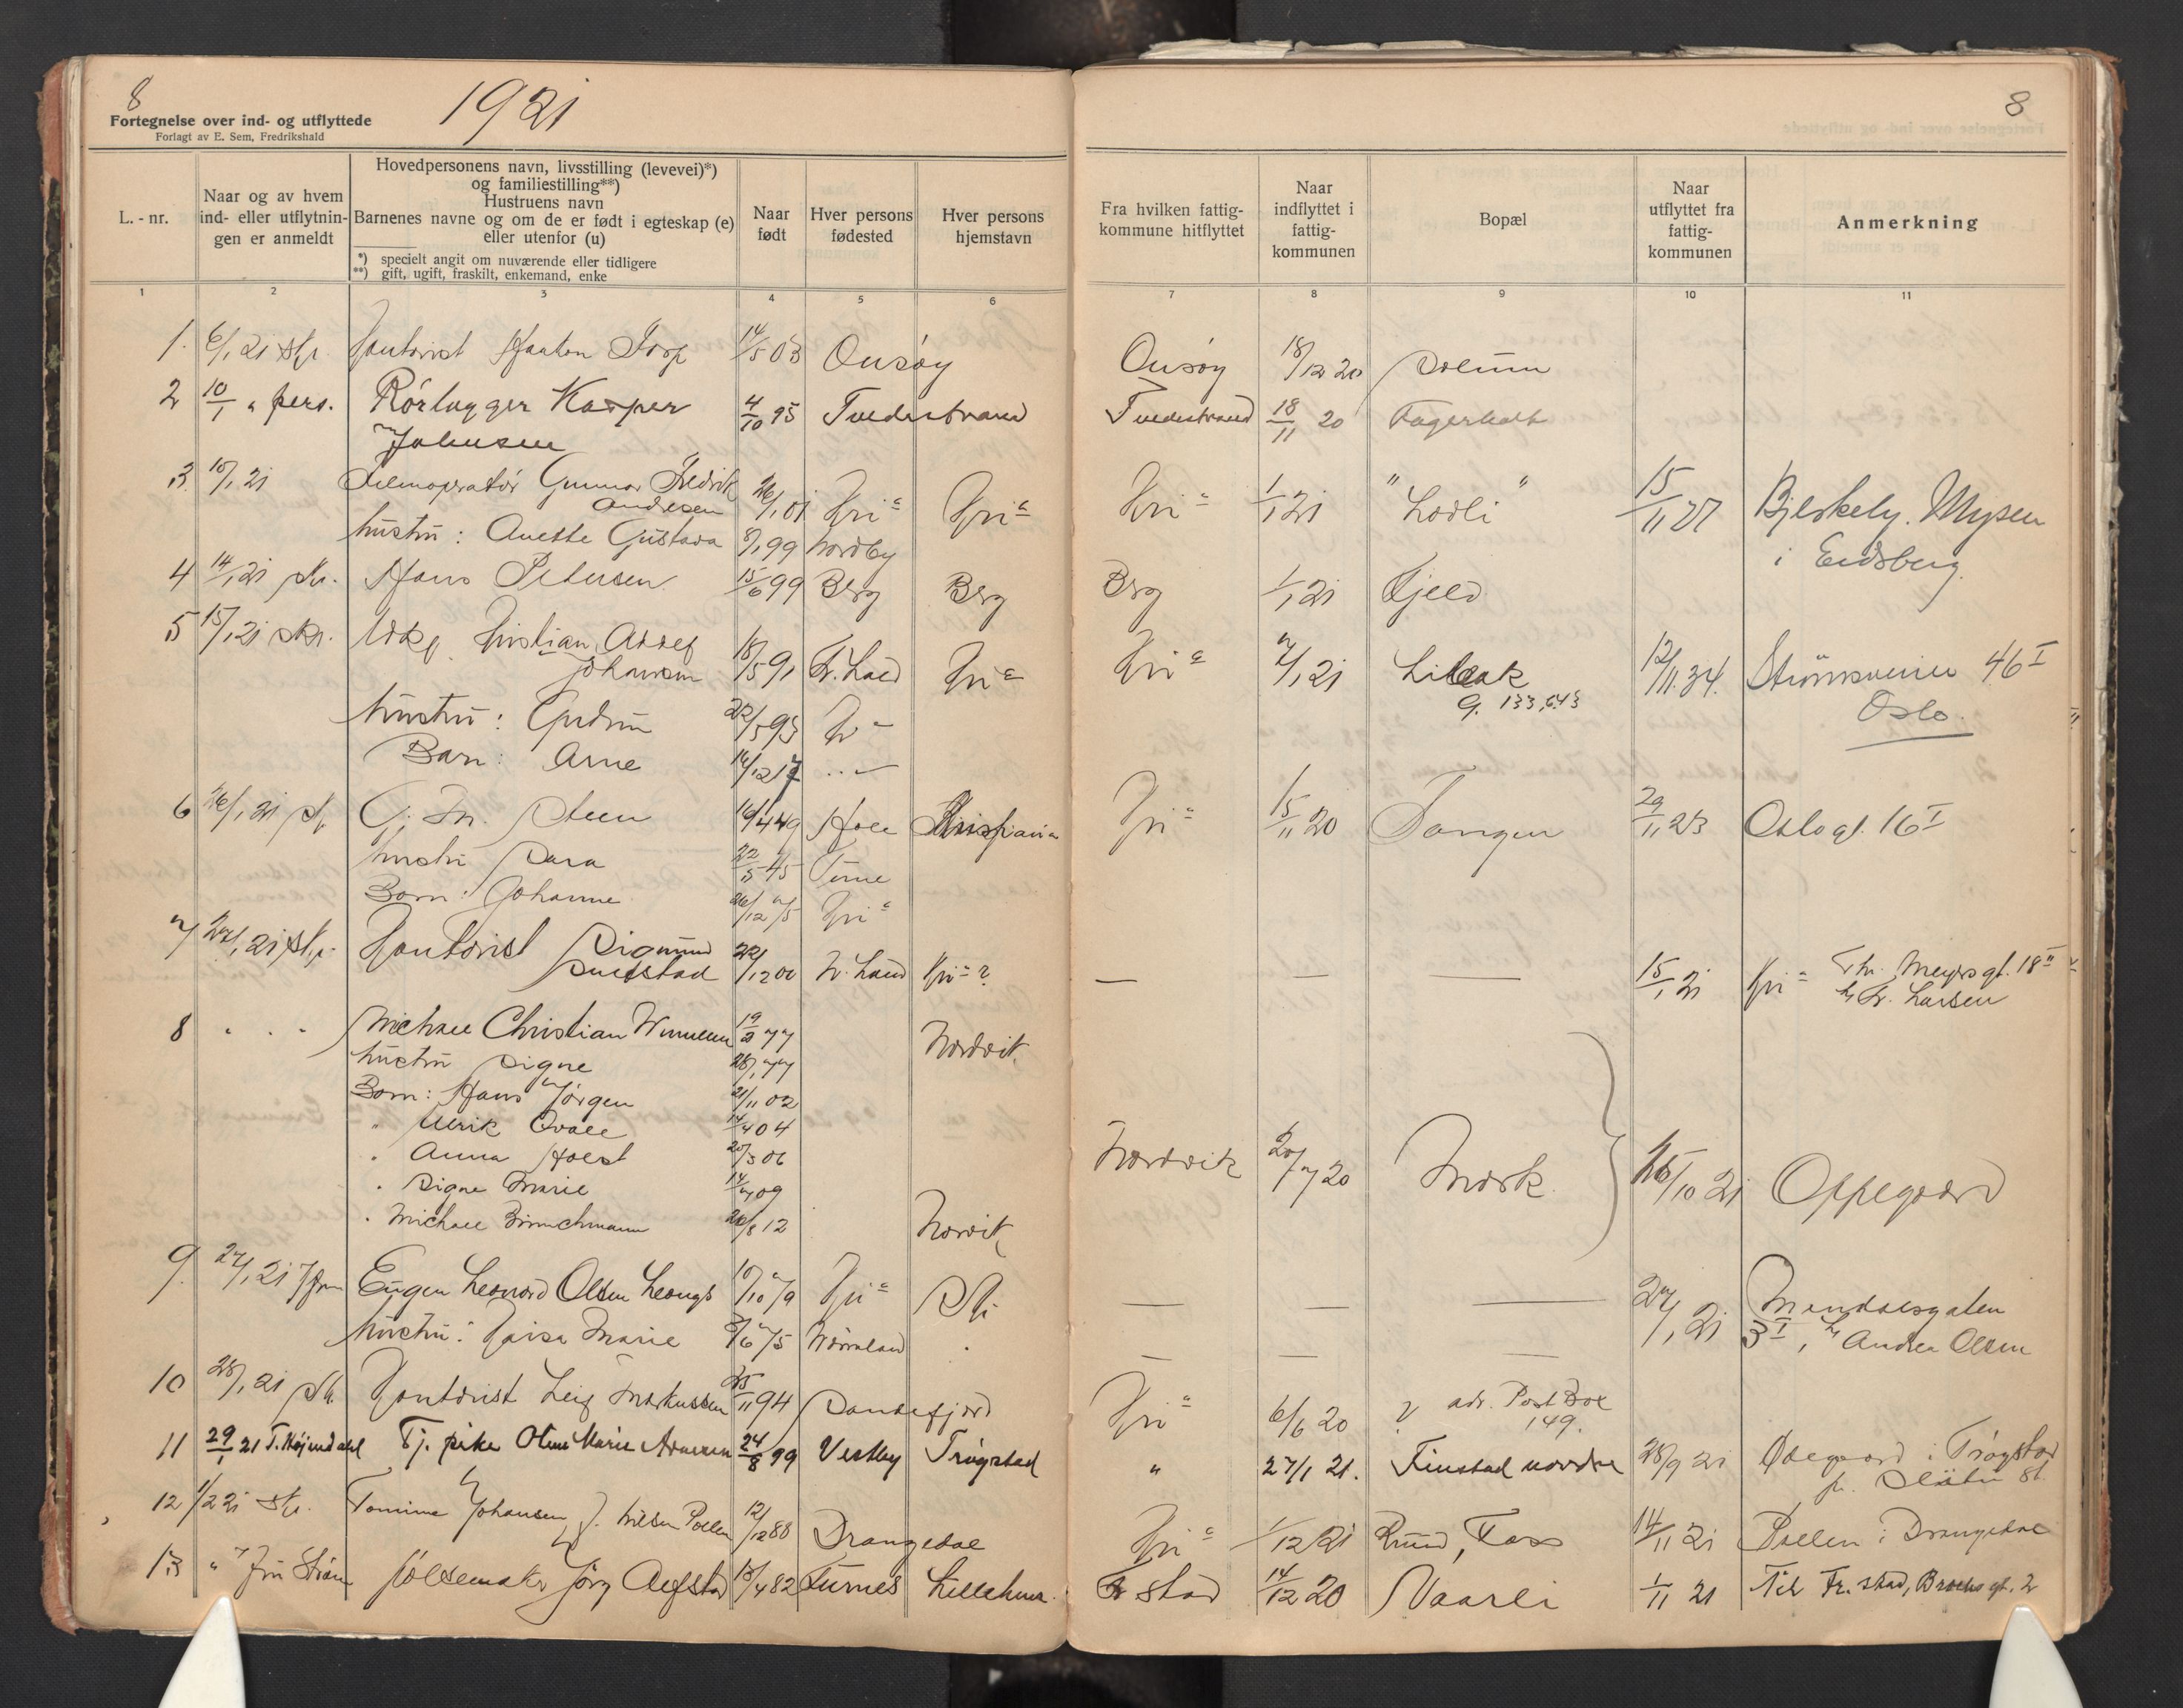 8
1921
8
Fortegnelse over ind- og utflyttede
Forlagt av E. Sem, Fredrikshald
L. - nr.
Naar og av hvem ind- eller utflytnin- gen er anmeldt
Hovedpersonens navn, livsstilling (levevei)*)
og familiestilling**)
Hustruens navn
Barnenes navne og om de er født i egteskap (e)
eller utenfor (u)
*) specielt angit om nuværende eller tidligere
**) gift, ugift, fraskilt, enkemand, enke
Naar født
Hver persons fødested
Hver persons hjemstavn
Fra hvilken fattig- kommune hitflyttet
Naar indflyttet i fattig- kommunen
Bopæl
Naar utflyttet fra fattig- kommunen
Anmerkning
1 2 3 4 5 6 7 8 9 10 11
1. 6/1 21 skr. Kontorist Haakon Torp 14/5 03 Onsøy Onsøy 18/12 20 Solum
2 10/1 " pers. Rørlegger Kasper 4/10 95 Tvedestrand Tvedestrand 18/11 20 Fagerholt
Johnsen
3. 10/1 21 Filmoperatør Gunnar Fredrik
Andresen 26/1 01 Kri a Kri a Kri a 1/1 21 "Lodli" 15/11 27 Bjerkely. Mysen
hustru: Anette Gustava 8/1 99 Nordby i Eidsberg.
4 14/1 21 skr. Hans Petersen 15/6 99 Berg Berg Berg 1/1 21 Fjeld
5 15/1 21 skr. Kristian Adolf
Johansen 18/5 91 Fr.hald Kri a Kri a 7/1 21 Libak 12/11.34. Strømsveien 46 I
G. 133, 643 Oslo.
hustru: Gudrun 22/5 93
Barn: Arne 14/12 17
6 26/1 21 Steen 16/4 49 Hole Kristiania Kri a 15/11 20 Tangen 29/11 23 Oslogt. 16 I
hustru Sara 22/5 45
Born: Johanne 26/12 75 Kri a
7 27/1 21 skr. Kontorist Sigmund
22/12 00 Kri a ? — — — 15/1 21 Kri a Th. Meyers gt. 18 II
Fr. Larsen
8 " " " Michael Christian 19/2 77 Nordvik
hustru Signe 28/1 77
Born: Hans Jørgen 21/11 02
" Ulrik Qvale 14/4 04
" Anna Holst 25/3 06 Nordvik 20/7 20 Mork. 26/10 21 Oppegaard
" Signe Marie 14/7 09
" Michael 20/8 12 Norvik
9. 27/1 21 Eugen Leonard Olsen 10/10 79 Kri a — — — 27/1 21 Mandalsgaten
3 I, Andrea Olsen
hustru: Marie 75 Værmland — — —
10 28/1 21 skr. Kontorist Leif Markussen 25/11 94 Sandefjord Kri a 6/6 20 ? adr. Post Box
149.
11 29/1 21 T. Højendahl Tj. pike Oline Marie 24/8 99 Vestby Trøgstad " 27/1 21. Finstad nordre 28/9 21 i Trøgstad
12 1/2 21 skr. Tomine Johansen 12/12 88 Drangedal Kri a 1/12 21 Ruud, Foss 14/11 21 Pollen i Drangedal
13 " Strøm Pølsemaker Jørg 15/4 82 Furnes Lillehmr. Fr stad 14/12 20 Vaarli 1/11 21 Til Fr. stad, Brochs gt. 2